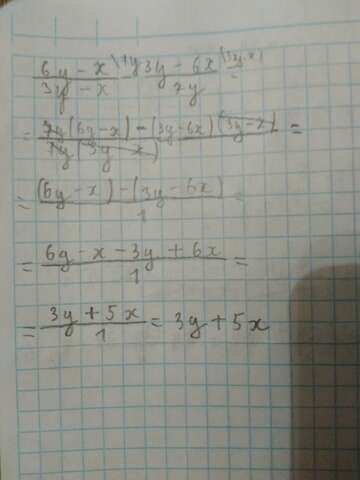 (6y - x)/(3y - x) \ - (3y - 6x)/(7y) (3y-x) =
= (7y(6y-x) - (3y-6x)(3y-x))/(7y(3y-x)) =
= ((6y-x) - (3y-6x))/1 =
= (6y - x - 3y + 6x)/1 =
= (3y + 5x)/1 = 3y + 5x